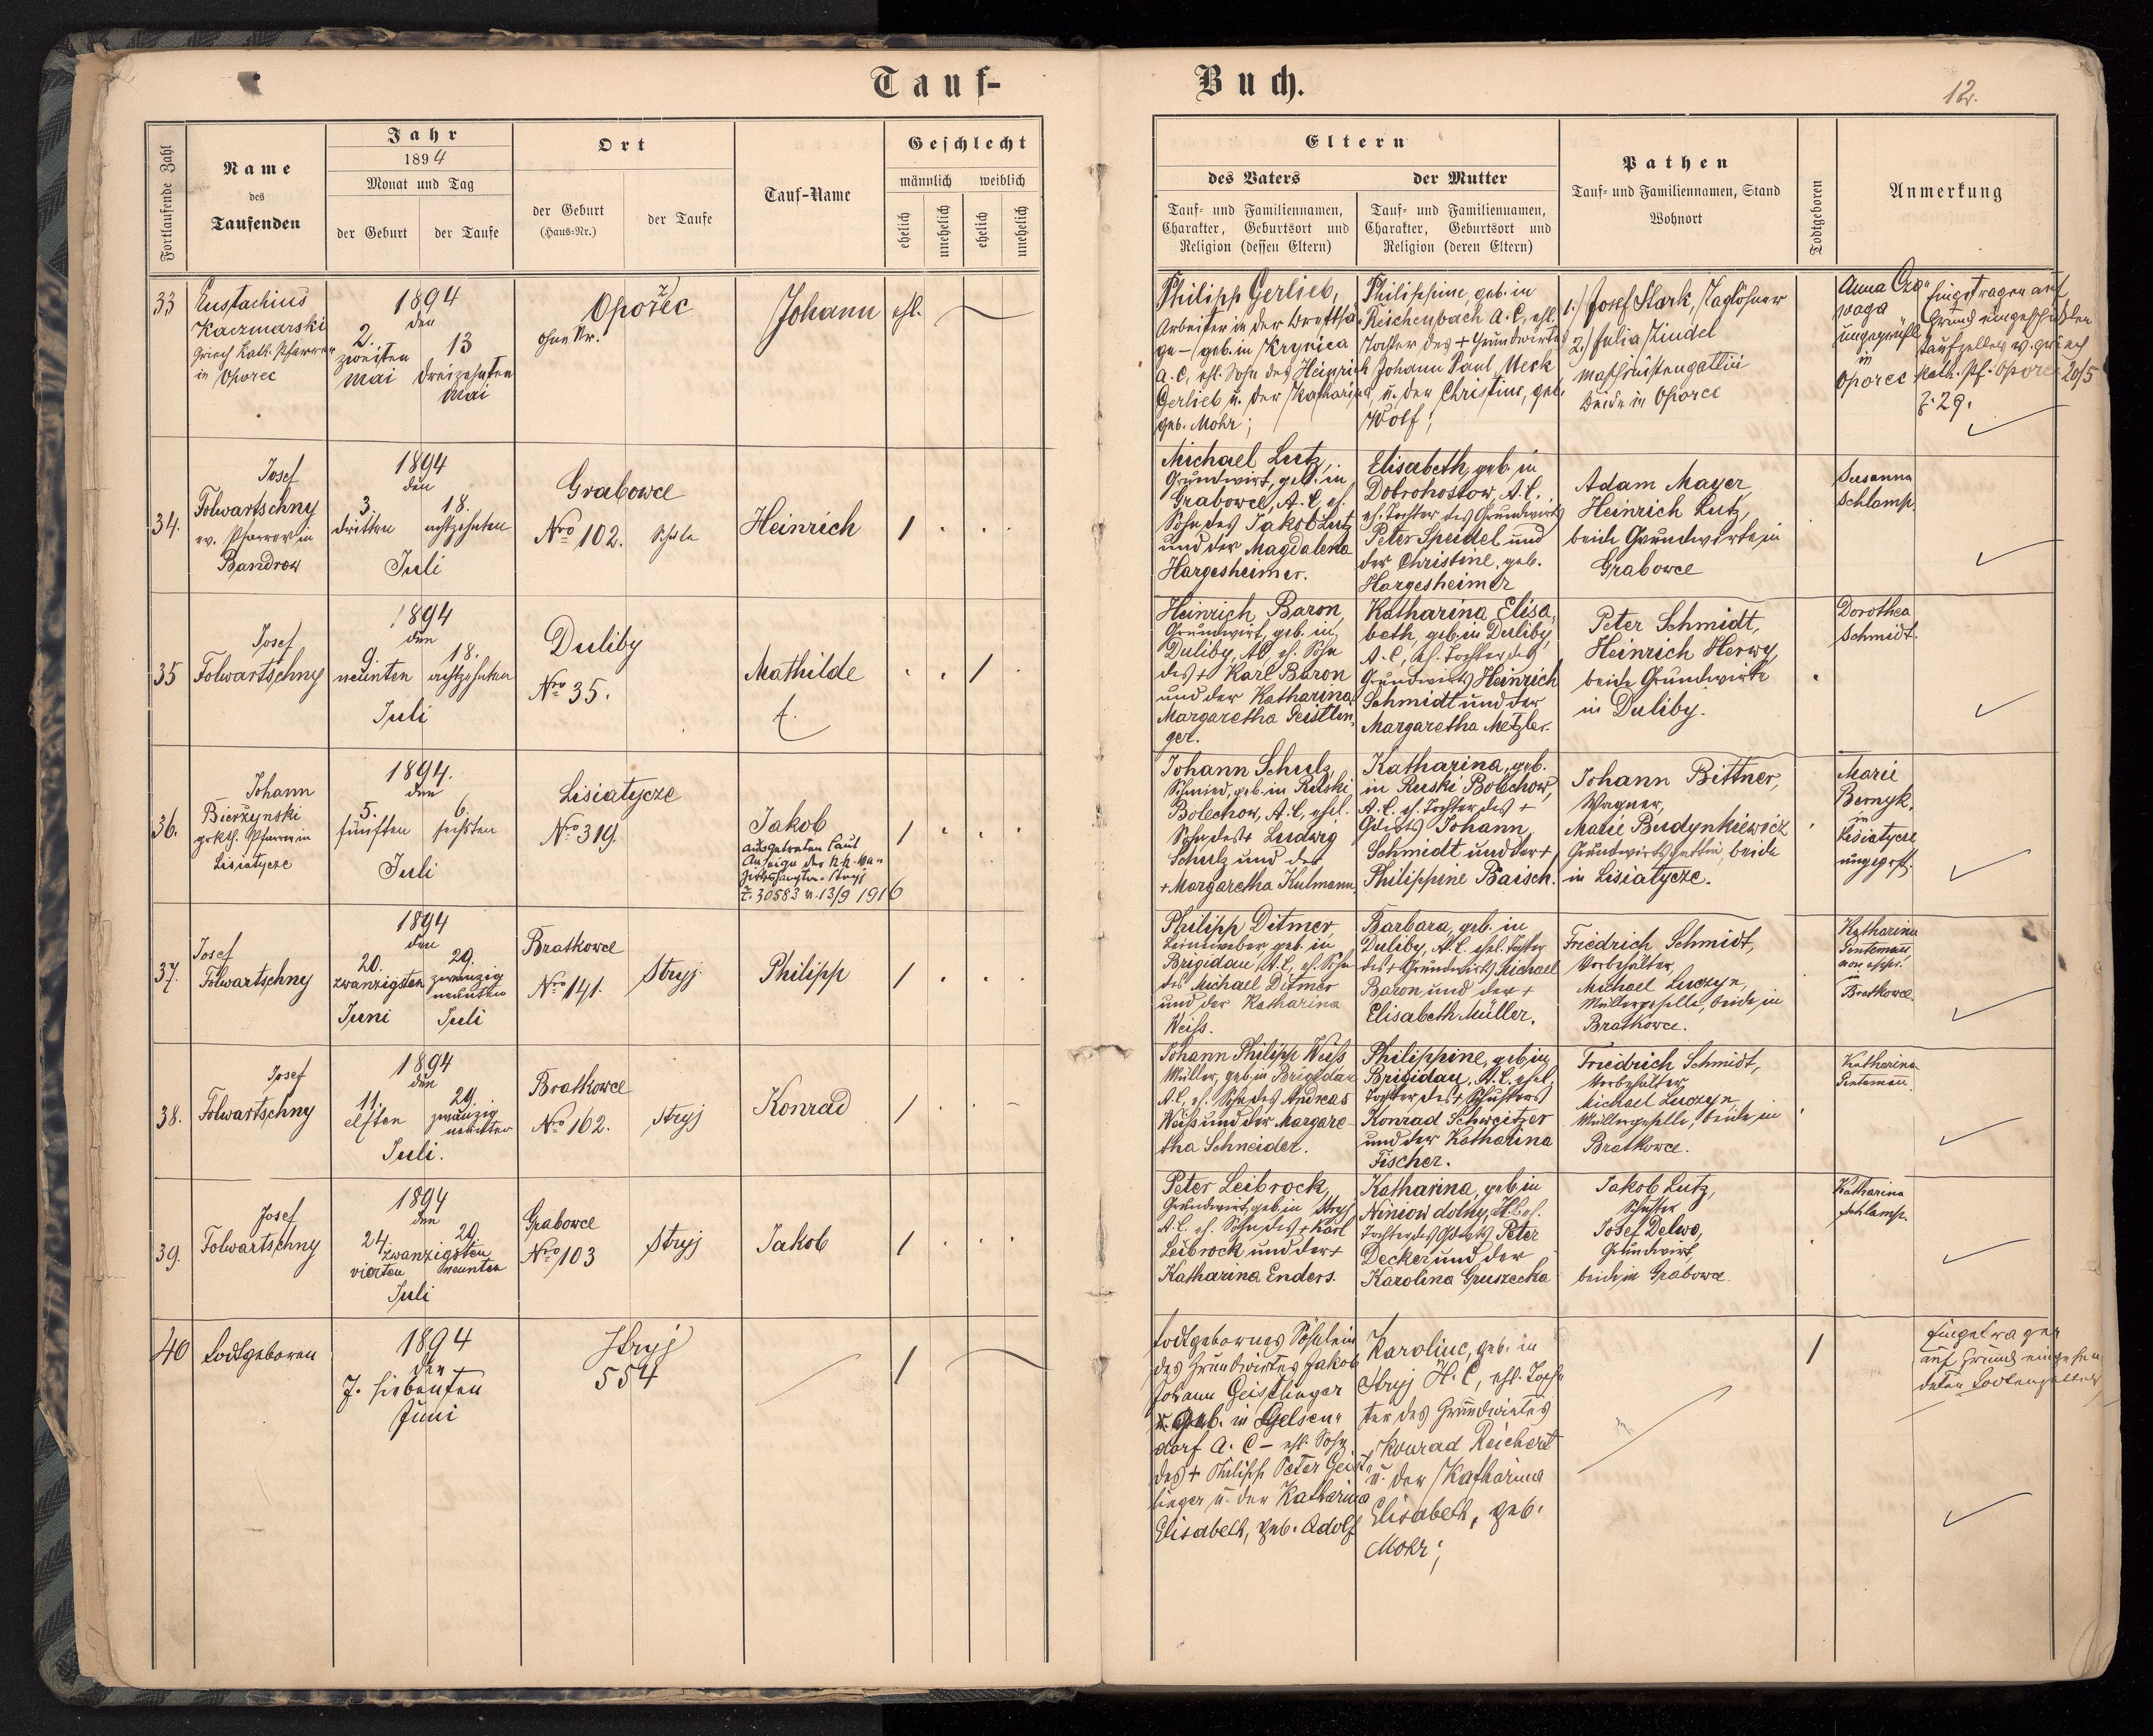 Tauf-
Buch.
12.
Fortlaufende Zahl
Name
des
Taufenden
Jahr
1894
Monat und Tag
der Geburt
der Taufe
Ort
der Geburt
(Haus-Nr.)
der Taufe
Tauf-Name
Geschlecht
männlich
weiblich
ehelich
unehelich
ehelich
unehelich
Eltern
des Vaters
der Mutter
Tauf- und Familiennamen,
Charakter, Geburtsort und
Religion (dessen Eltern)
Tauf- und Familiennamen,
Charakter, Geburtsort und
Religion (deren Eltern)
Pathen
Tauf- und Familiennamen, Stand
Wohnort
Todtgeboren
Anmerkung
33
Eustachius
Kaczmarski
griech. kath. Pfarrer
in Oporec
1894
den
2.
zweiten
Mai
13
dreizehnten
Mai
Oporzec
ohne Nr.
Johann
ehl.
Philipp Gerlieb,
Arbeiter in der
geb. in Krynica
A. C., ehl. Sohn des Heinrich
Gerlieb u. der Katharina,
geb. Mohr;
Philippine, geb. in
Reichenbach A. C., ehl.
Tochter des + Grundwirtes
Johann Paul Meck
u. der Christine, geb.
Wolf;
1.) Josef Stark, Taglöhner
2.) Julia Zindel
Maschinistengattin
beide in Oporec
Anna
ungeprüft
in
Oporec
Eingetragen auf
Grund eingeschickten
Taufzettels v. griech
kath. Pf. Oporec 20/5
Z. 29.
34.
Josef
Folwartschny
ev. Pfarrer in
Bandrow
1894
den
3.
dritten
18.
achtzehnten
Juli
Grabowce
Nro 102.
Schule
Heinrich
1
Michael Lutz,
Grundwirt, geb. in
Grabowce, A. C. eh.
Sohn des Jakob Lutz
und der Magdalena
Hargesheimer.
Elisabeth, geb. in
Dobrohostow, A. C.
eh. Tochter des Grundwirts
Peter Speidel und
der Christine, geb.
Hargesheimer
Adam Mayer,
Heinrich Lutz,
beide Grundwirte in
Grabowce
Susanna
Schlamp.
35
Josef
Folwartschny
1894
den
9.
neunten
18.
achtzehnten
Juli
Duliby
Nro 35.
Mathilde
†.
1
Heinrich Baron,
Grundwirt, geb. in
Duliby, AC eh. Sohn
des + Karl Baron
und der Katharina
Margaretha Geistlin-
ger.
Katharina Elisa-
beth, geb. in Duliby,
A. C., eh. Tochter des
Grundwirts Heinrich
Schmidt und der
Margaretha Metzler.
Peter Schmidt,
Heinrich Herwy,
beide Grundwirte
in Duliby.
Dorothea
Schmidt.
36.
Johann
Bierzynski
gr. kth. Pfarrer in
Lisiatycze
1894.
den
5.
fünften
6.
sechsten
Juli
Lisiatycze
Nro 319.
Jakob
ausgetreten laut
Anzeige der k. k. Be-
zirkshauptm. Stryj
Z. 30583 v. 13/9 1916
1
Johann Schulz,
Schmied, geb. in Ruski
Bolechow, A. C., ehel.
Sohn des + Ludwig
Schulz und der
+ Margaretha Kulmann
Katharina, geb.
in Ruski Bolechow,
A. C. eh. Tochter des +
Gdwts Johann
Schmidt und der +
Philippine Baisch.
Johann Bittner,
Wagner,
Marie Budynkiewicz
Grundwirtsgattin, beide
in Lisiatycze.
Marie
Bernyk,
in
Lisiatycze
ungeprft.
37.
Josef
Folwartschny
1894
den
20.
zwanzigsten
Juni
29.
zwanzig
neunten
Juli
Bratkowce
Nro 141.
Stryj.
Philipp
1
Philipp Ditmer,
Leinweber, geb. in
Brigidau, A. C., eh. Sohn
des Michael Ditmer
und der Katharina
Weiss.
Barbara, geb. in
Duliby, A. C. ehel. Tochter
des + Grundwirts Michael
Baron und der +
Elisabeth Müller.
Friedrich Schmidt,
Vorbehälter,
Michael Luczyn,
Müllergeselle, beide in
Bratkowce.
Katharina
in
Bratkowce
38.
Josef
Folwartschny
1894
den
11.
elften
29.
zwanzig
neunten
Juli.
Bratkowce
Nro 162.
Stryj
Konrad
1
Johann Philipp Weiss
Müller, geb. in Brigidau
A. C., eh. Sohn des Andreas
Weiss und der Margare-
tha Schneider.
Philippine, geb. in
Brigidau, A. C. ehel.
Tochter des + Schusters
Konrad Schweitzer
und der Katharina
Fischer.
Friedrich Schmidt,
Vorbehälter,
Michael Luczyn,
Müllergeselle, beide in
Bratkowce.
Katharina
39.
Josef
Folwartschny
1894
den
24.
29.
zwanzigsten
vierten neunten
Juli
Grabowce
Nro 103
Stryj
Jakob
1
Peter Leibrock,
Grundwirt, geb. in Stryj
A. C. eh. Sohn des + Karl
Leibrock und der +
Katharina Enders.
Katharina, geb. in
Niniow dolny, H. C. eh.
Tochter des Gdwts Peter
Decker und der
Karolina Gruszecka
Jakob Lutz,
Schuster
Josef Delwo,
Grundwirt,
beide in Grabowce
Katharina
Schlamp.
40
todtgeboren
1894
den
7. siebenten
Juni
Stryj
554
1
todtgebornes Söhnlein
des Grundwirtes Jakob
Johann Geistlinger
geb. in Gelsen-
dorf A. C – ehl. Sohn
des + Philipp Peter Geist-
linger u. der Katharina
Elisabeth, geb. Adolf
Karoline, geb. in
Stryj H. C, ehl. Toch-
ter des Grundwirtes
Konrad Reichert
u. der Katharina
Elisabeth, geb.
Mohr;
1
Eingetragen
auf Grund eingesen-
deten Todtenzettels